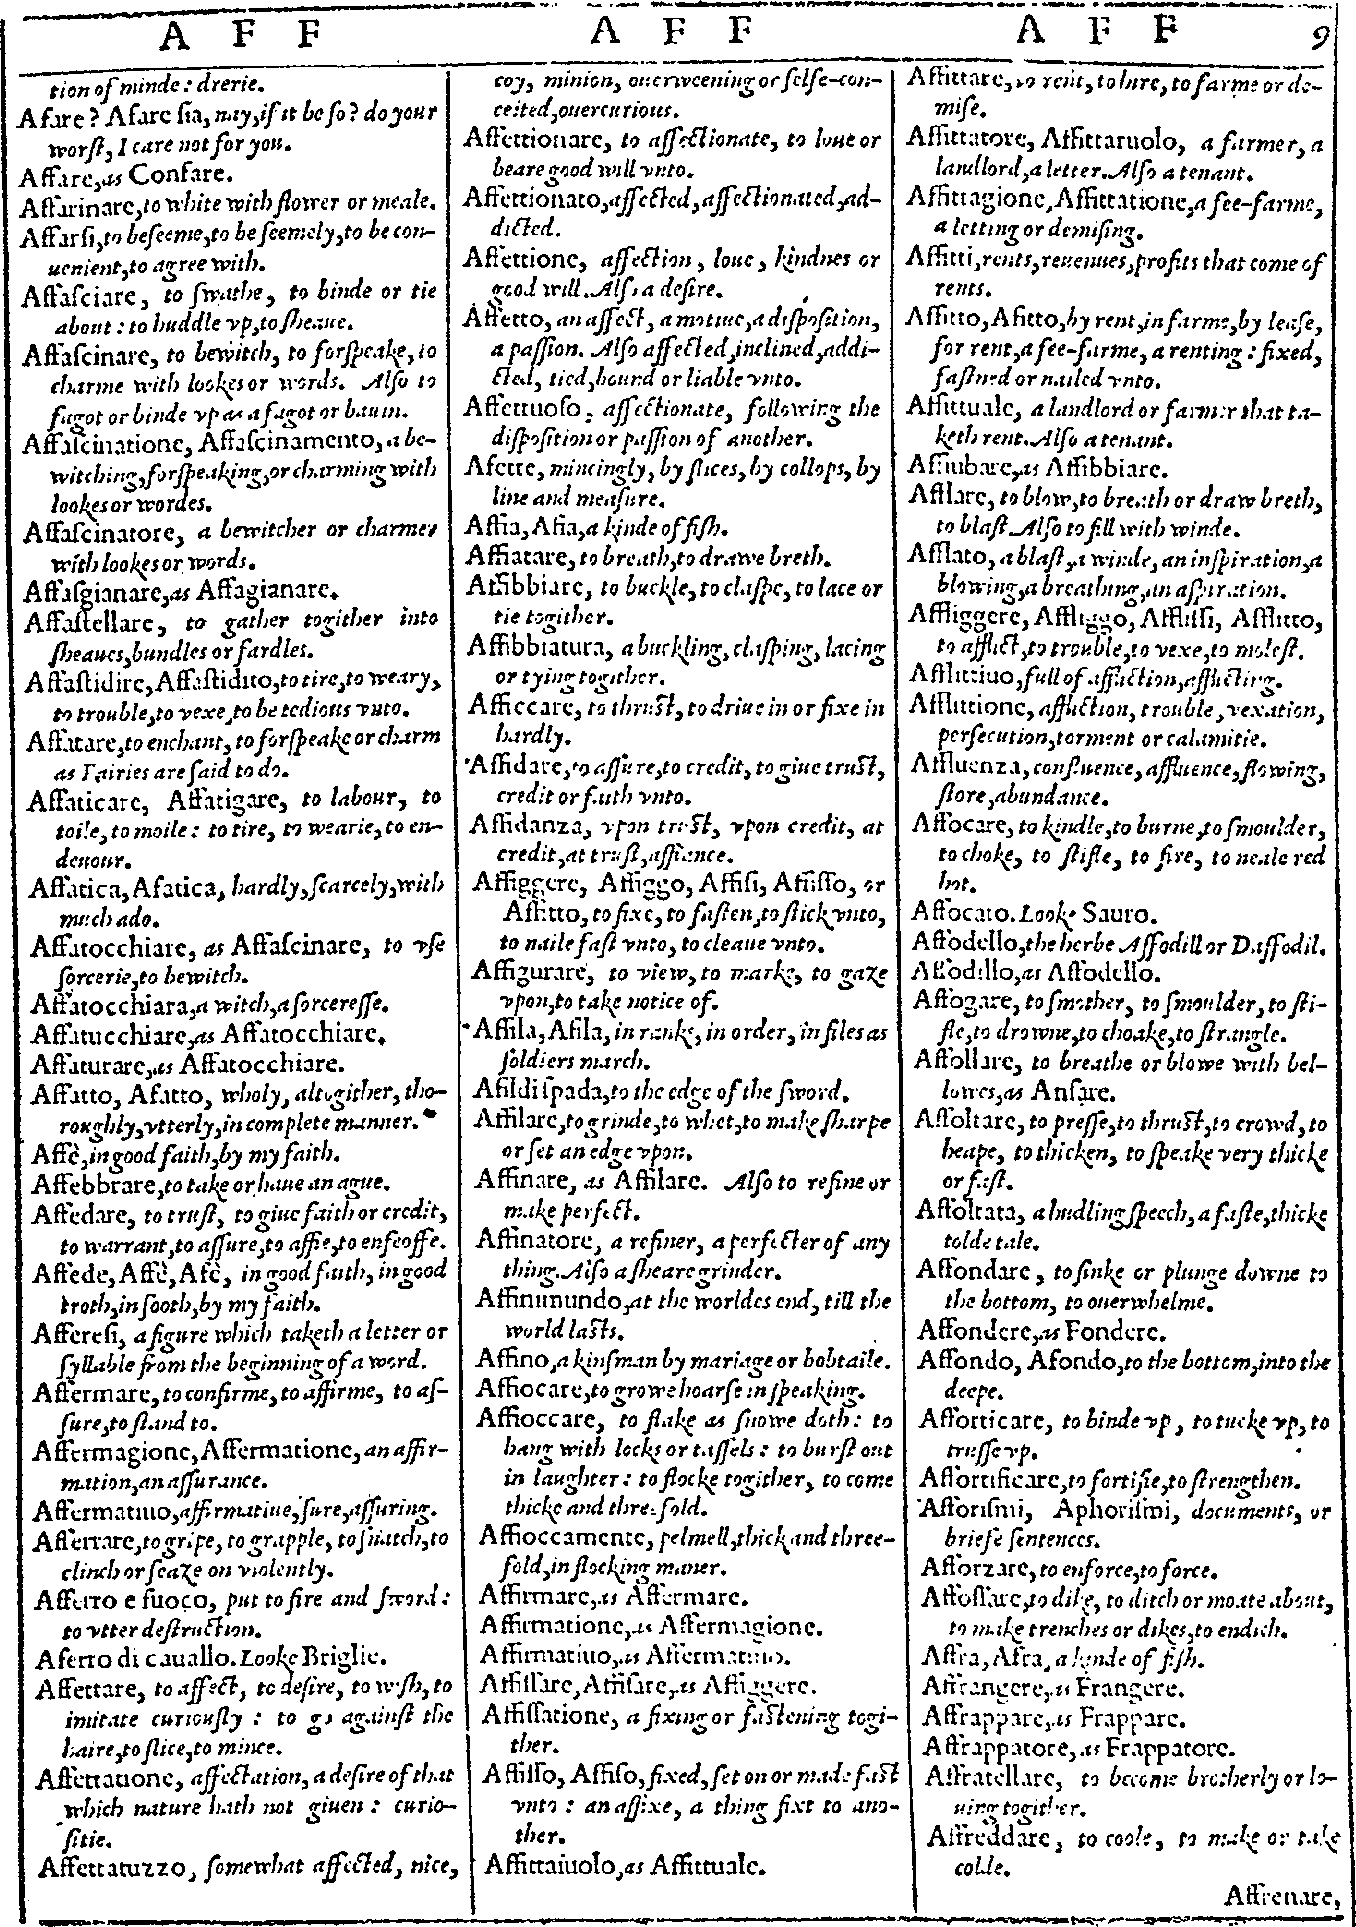 A F F A F F A F F 9
tion of minde: drerie.
Afare? Afare sia, nay, if it be so? do your
worst, I care not for you.
Affare, as Confare.
Affarinare, to white with flower or meale.
Affarsi, to beseeme, to be seemely, to be con-
uenient, to agree with.
Affasciare, to swathe, to binde or tie
about: to huddle vp, to sheaue.
Affascinare, to bewitch, to forspeake, to
charme with lookes or words. Also to
fagot or binde vp as a fagot or bauin.
Affascinatione, Affascinamento, a be-
witching, forspeaking, or charming with
lookes or wordes.
Affascinatore, a bewitcher or charmer
with lookes or words.
Affasgianare, as Affagianare.
Affastellare, to gather togither into
sheaues, bundles or fardles.
Affastidire, Affastidito, to tire, to weary,
to trouble, to vexe, to be tedious vnto.
Affatare, to enchant, to forspeake or charm
as Fairies are said to do.
Affaticare, Affatigare, to labour, to
toile, to moile: to tire, to wearie, to en-
deuour.
Affatica, Afatica, hardly, scarcely, with
much ado.
Affatocchiare, as Affascinare, to vse
sorcerie, to bewitch.
Affatocchiara, a witch, a sorceresse.
Affatucchiare, as Affatocchiare.
Affaturare, as Affatocchiare.
Affatto, Afatto, wholy, altogither, tho-
roughly, vtterly, in complete manner.
Affè, in good faith, by my faith.
Affebbrare, to take or haue an ague.
Affedare, to trust, to giue faith or credit,
to warrant, to assure, to affie, to enfeoffe.
Affede, Affè, Afè, in good faith, in good
troth, in sooth, by my faith.
Afferesi, a figure which taketh a letter or
syllable from the beginning of a word.
Affermare, to confirme, to affirme, to as-
sure, to stand to.
Affermagione, Affermatione, an affir-
mation, an assurance.
Affermatiuo, affirmatiue, sure, assuring.
Afferrare, to gripe, to grapple, to snatch, to
clinch or seaze on violently.
Afferro e fuoco, put to fire and sword:
to vtter destruction.
Aferro di cauallo. Looke Briglie.
Affettare, to affect, to desire, to wish, to
imitate curiously: to go against the
haire, to slice, to mince.
Affettatione, affectation, a desire of that
which nature hath not giuen: curio-
sitie.
Affettatuzzo, somewhat affected, nice,
coy, minion, ouerweening or selfe-con-
ceited, ouercurious.
Affettionare, to affectionate, to loue or
beare good will vnto.
Affettionato, affected, affectionated, ad-
dicted.
Affettione, affection, loue, kindnes or
good will. Also a desire.
Affetto, an affect, a motiue, a disposition,
a passion. Also affected, inclined, addi-
cted, tied, bound or liable vnto.
Affettuoso, affectionate, following the
disposition or passion of another.
Afette, mincingly, by slices, by collops, by
line and measure.
Affia, Afia, a kinde of fish.
Affiatare, to breath, to drawe breth.
Affibbiare, to buckle, to claspe, to lace or
tie togither.
Affibbiatura, a buckling, clasping, lacing
or tying togither.
Afficcare, to thrust, to driue in or fixe in
hardly.
Affidare, to assure, to credit, to giue trust,
credit or faith vnto.
Affidanza, vpon trust, vpon credit, at
credit, at trust, affiance.
Affiggere, Affiggo, Affisi, Affisso, or
Affitto, to fixe, to fasten, to stick vnto,
to naile fast vnto, to cleaue vnto.
Affigurare, to view, to marke, to gaze
vpon, to take notice of.
Affila, Afila, in ranke, in order, in files as
soldiers march.
Afildi spada, to the edge of the sword.
Affilare, to grinde, to whet, to make sharpe
or set an edge vpon.
Affinare, as Affilare. Also to refine or
make perfect.
Affinatore, a refiner, a perfecter of any
thing. Also a sheare grinder.
Affinimundo, at the worldes end, till the
world lasts.
Affino, a kinsman by mariage or bobtaile.
Affiocare, to growe hoarse in speaking.
Affioccare, to flake as snowe doth: to
hang with locks or tassels: to burst out
in laughter: to flocke togither, to come
thicke and threefold.
Affioccamente, pelmell, thick and three-
fold, in flocking maner.
Affirmare, as Affermare.
Affirmatione, as Affermagione.
Affirmatiuo, as Affermatiuo.
Affissare, Affisare, as Affiggere.
Affissatione, a fixing or fastening togi-
ther.
Affisso, Affiso, fixed, set on or made fast
vnto: an affixe, a thing fixt to ano-
ther.
Affittaiuolo, as Affittuale.
Affittare, to rent, to hire, to farme or de-
mise.
Affittatore, Affittaruolo, a farmer, a
landlord, a letter. Also a tenant.
Affittagione, Affittatione, a fee-farme,
a letting or demising.
Affitti, rents, reuenues, profits that come of
rents.
Affitto, Afitto, by rent, in farme, by lease,
for rent, a fee-farme, a renting: fixed,
fastned or nailed vnto.
Affittuale, a landlord or farmer that ta-
keth rent. Also a tenant.
Affiubare, as Affibbiare.
Afflare, to blow, to breath or draw breth,
to blast. Also to fill with winde.
Afflato, a blast, a winde, an inspiration, a
blowing, a breathing, an aspiration.
Affliggere, Affliggo, Afflissi, Afflitto,
to afflict, to trouble, to vexe, to molest.
Afflittiuo, full of affliction, afflicting.
Afflittione, affliction, trouble, vexation,
persecution, torment or calamitie.
Affluenza, confluence, affluence, flowing,
store, abundance.
Affocare, to kindle, to burne, to smoulder,
to choke, to stifle, to fire, to neale red
hot.
Affocato. Looke Sauro.
Affodello, the herbe Affodill or Daffodil.
Affodillo, as Affodello.
Affogare, to smother, to smoulder, to sti-
fle, to drowne, to choake, to strangle.
Affollare, to breathe or blowe with bel-
lowes, as Ansare.
Affoltare, to presse, to thrust, to crowd, to
heape, to thicken, to speake very thicke
or fast.
Affoltata, a hudling speech, a faste, thicke
tolde tale.
Affondare, to sinke or plunge downe to
the bottom, to ouerwhelme.
Affondere, as Fondere.
Affondo, Afondo, to the bottom, into the
deepe.
Afforticare, to binde vp, to tucke vp, to
trusse vp.
Affortificare, to fortifie, to strengthen.
Afforismi, Aphorismi, documents, or
briefe sentences.
Afforzare, to enforce, to force.
Affossare, to dike, to ditch or moate about,
to make trenches or dikes, to endich.
Affra, Afra, a kinde of fish.
Affrangere, as Frangere.
Affrappare, as Frappare.
Affrappatore, as Frappatore.
Affratellare, to become brotherly or lo-
uing togither.
Affreddare, to coole, to make or take
colde.
Affrenare,